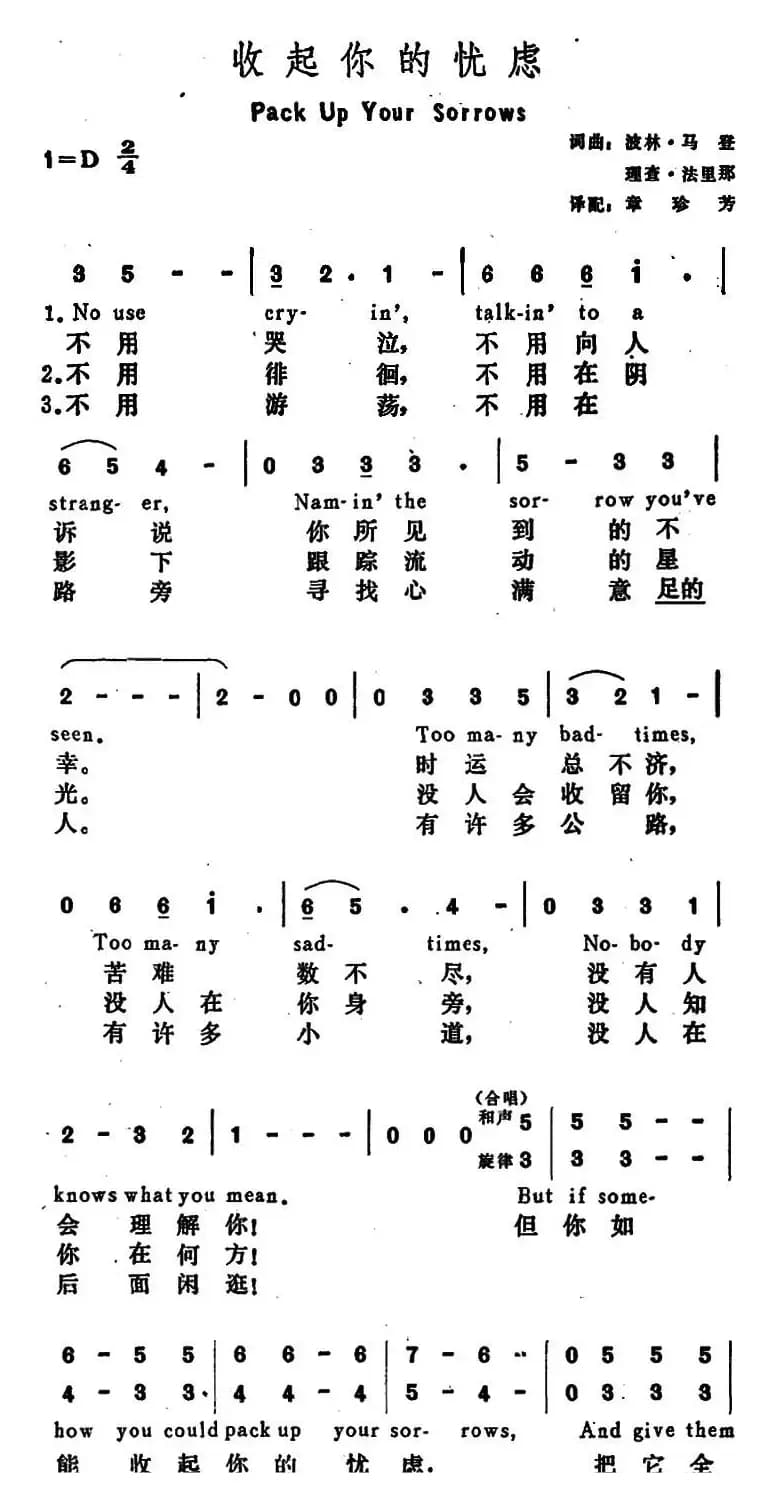 收起你的忧虑
Pack Up Your Sorrows
1=D 2/4
词曲：波林·马登
理查·法里那
译配：章珍芳
3 5 - - | 3 2 . 1 - | 6 6 6 i . |
1. No use cry- in', talk-in' to a
不用哭泣，不用向人
2.不用徘徊，不用在阴
3.不用游荡，不用在
6 5 4 - | 0 3 3 3 . | 5 - 3 3 |
strang- er, Nam-in' the sor- row you've
诉说你所见到的不
影下跟踪流动的星
路旁寻找心满意足的
2 - - - | 2 - 0 0 | 0 3 3 5 | 3 2 1 - |
seen. Too ma- ny bad- times,
幸。时运总不济，
光。没人会收留你，
人。有许多公路，
0 6 6 i . | 6 5 . 4 - | 0 3 3 1 |
Too ma- ny sad- times, No- bo- dy
苦难数不尽，没有人
没人在你身旁，没人知
有许多小道，没人在
(合唱)
2 - 3 2 | 1 - - - | 0 0 0 和声 5 | 5 5 - - |
旋律 3 | 3 3 - - |
knows what you mean. But if some-
会理解你！但你如
你在何方！
后面闲逛！
6 - 5 5 | 6 6 - 6 | 7 - 6 - | 0 5 5 5 |
4 - 3 3 | 4 4 - 4 | 5 - 4 - | 0 3 3 3 |
how you could pack up your sor- rows, And give them
能收起你的忧虑．把它全